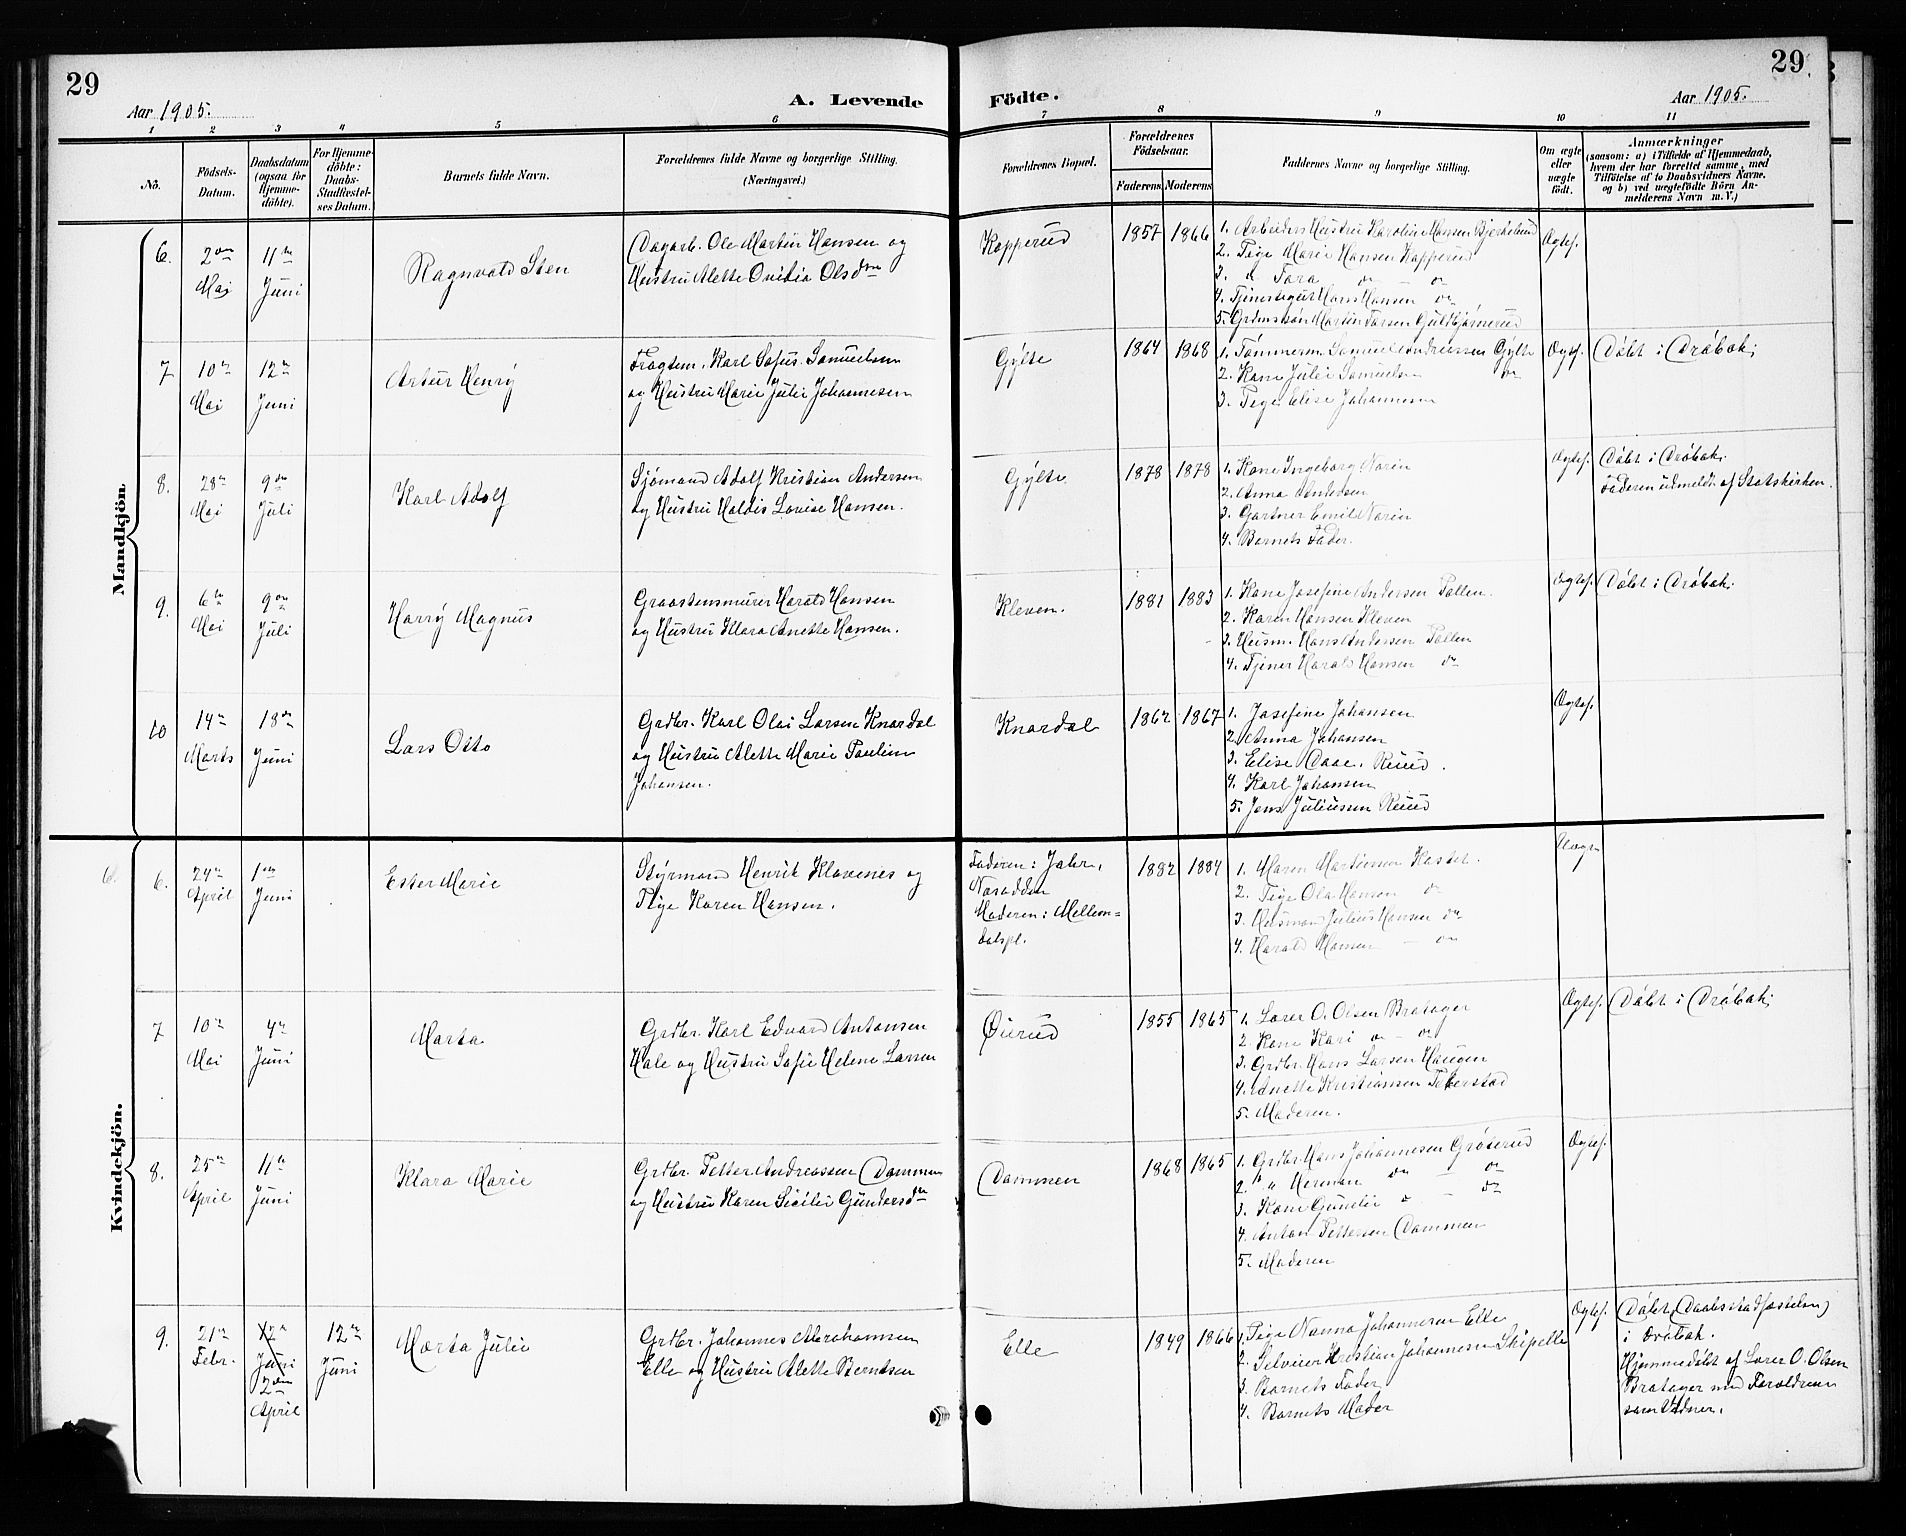 29
Aar 1905.
A. Levende
Födte.
Aar 1905.
29
1 2 3 4 5 6 7 8 9 10 11
No.
Födsels-
Datum.
Daabsdatum
(ogsaa for
Hjemme-
döbte).
For Hjemme-
döbte:
Daabs-
Stadfæstel-
ses Datum.
Barnets fulde Navn.
Forældrenes fulde Navne og borgerlige Stilling.
(Næringsvei.)
Forældrenes Bopæl.
Forældrenes
Födselsaar.
Faderens. Moderens.
Faddernes Navne og borgerlige Stilling.
Om ægte
eller
uægte
födt.
Anmærkninger
(saasom: a) i Tilfælde af Hjemmedaab,
hvem der har forrettet samme, med
Tilföielse af to Daabsvidners Navne,
og b) ved uægtefödte Börn An-
melderens Navn m. V.)
Mandkjön.
6.
2den
Mai
11te
Juni
Ragnvald Sten
Dagarb. Ole Martin Hansen og
Hustru Alette Ovidia Olsdtr
Kopperud
1857 1866
1. Arbeiders Hustru Karoline Hansen Bjerkelund
2. Pige Marie Hansen Kopperud
3. " Tora do - do
4. Tjenestegut Hans Hansen do
5. Grdmssön Martin Larsen Guldbjørnerud
Ægtef.
7
10de
Mai
12te
Juni
Artur Henrÿ
Fragtem. Karl Sofus Samuelsen
og Hustru Marie Julie Johannesen
Gÿlte
1864 1868
1. Tömmerm. Samuel Andreassen Gÿlte
2. Kone Julie Samuelsen do
3. Pige Elise Johannesen
Ægtef.
Döbt i Dröbak.
8.
28de
Mai
9de
Juli
Karl Adolf
Sjömand Adolf Kristian Andersen
og Hustru Haldis Lovise Hansen.
Gÿlte
1878 1878
1. Kone Ingeborg Norin
2. Anna Andersen
3. Gartner Emil Norin
4. Barnets Fader.
Ægtef.
Döbt i Dröbak.
Faderen udmeldt af Statskirken.
9.
6te
Mai
9de
Juli
Harrÿ Magnus
Graastensmurer Harald Hansen
og Hustru Klara Anette Hansen.
Kleven.
1881 1883
1. Kone Josefine Andersen Pollen.
2. Karen Hansen Kleven
3. Husm. Hans Andersen Pollen
4. Tjener Harald Hansen do
Ægtef.
Döbt i Dröbak.
10
14de
Marts
18de
Juni
Lars Otto
Grdbr. Karl Olai Larsen Knardal
og Hustru Alette Marie Pauline
Johansen.
Knardal
1862 1867
1. Josefine Johansen
2. Anna Johansen
3. Elise Daae, Ruud.
4. Karl Johansen
5. Jens Juliussen Ruud
Ægtef.
Kvindekjön.
6.
6.
24de
April
1ste
Juni
Ester Marie
Stÿrmand Henrik Klavenes og
Pige Karen Hansen.
Faderen: Jahr,
Nasodden
Moderen: Mellem-
dalspl.
1882 1884
1. Maren Martinsen Kastel.
2. Pige Ola Hansen do
3. Husmand Julius Hansen do
4. Harald Hansen - do
Uægte
7
10de
Mai
4de
Juni
Marta
Grdbr. Karl Edvard Antonsen
Hale og Hustru Sofie Helene Larsen
Øurud
1855 1865
1. Lærer O. Olsen Bratager
2. Kone Kari do - do
3. Grdbr. Hans Larsen Haugen
4. Anette Kristiansen Fekerstad
5. Moderen.
Ægtef.
Döbt i Dröbak.
8.
25de
April
11te
Juni
Klara Marie
Grdbr. Petter Andreassen Dammen
og Hustru Karen Sicilie Gundersdtr
Dammen
1868 1865
1. Grdbr. Hans Johannesen Gröterud
2. " " Herman do - do
3. Kone Gunelie do - do
4. Anton Pettersen Dammen
5. Moderen
Ægtef.
9.
21de
Febr.
12te
Juni
2den
April
12te
Juni
Marta Julie
Grdbr. Johannes Abrahamsen
Elle og Hustru Alette Berntsen
Elle
1849 1866
1. Pige Nanna Johannesen Elle
2. Selveier Kristian Johannesen Skipelle
3. Barnets Fader
4. Barnets Moder
Ægtef.
Döbt (Daabsstadfæstelsen)
i Dröbak.
Hjemmedöbt af Lærer O. Olsen
Bratager med Forældrene
som Vidner.